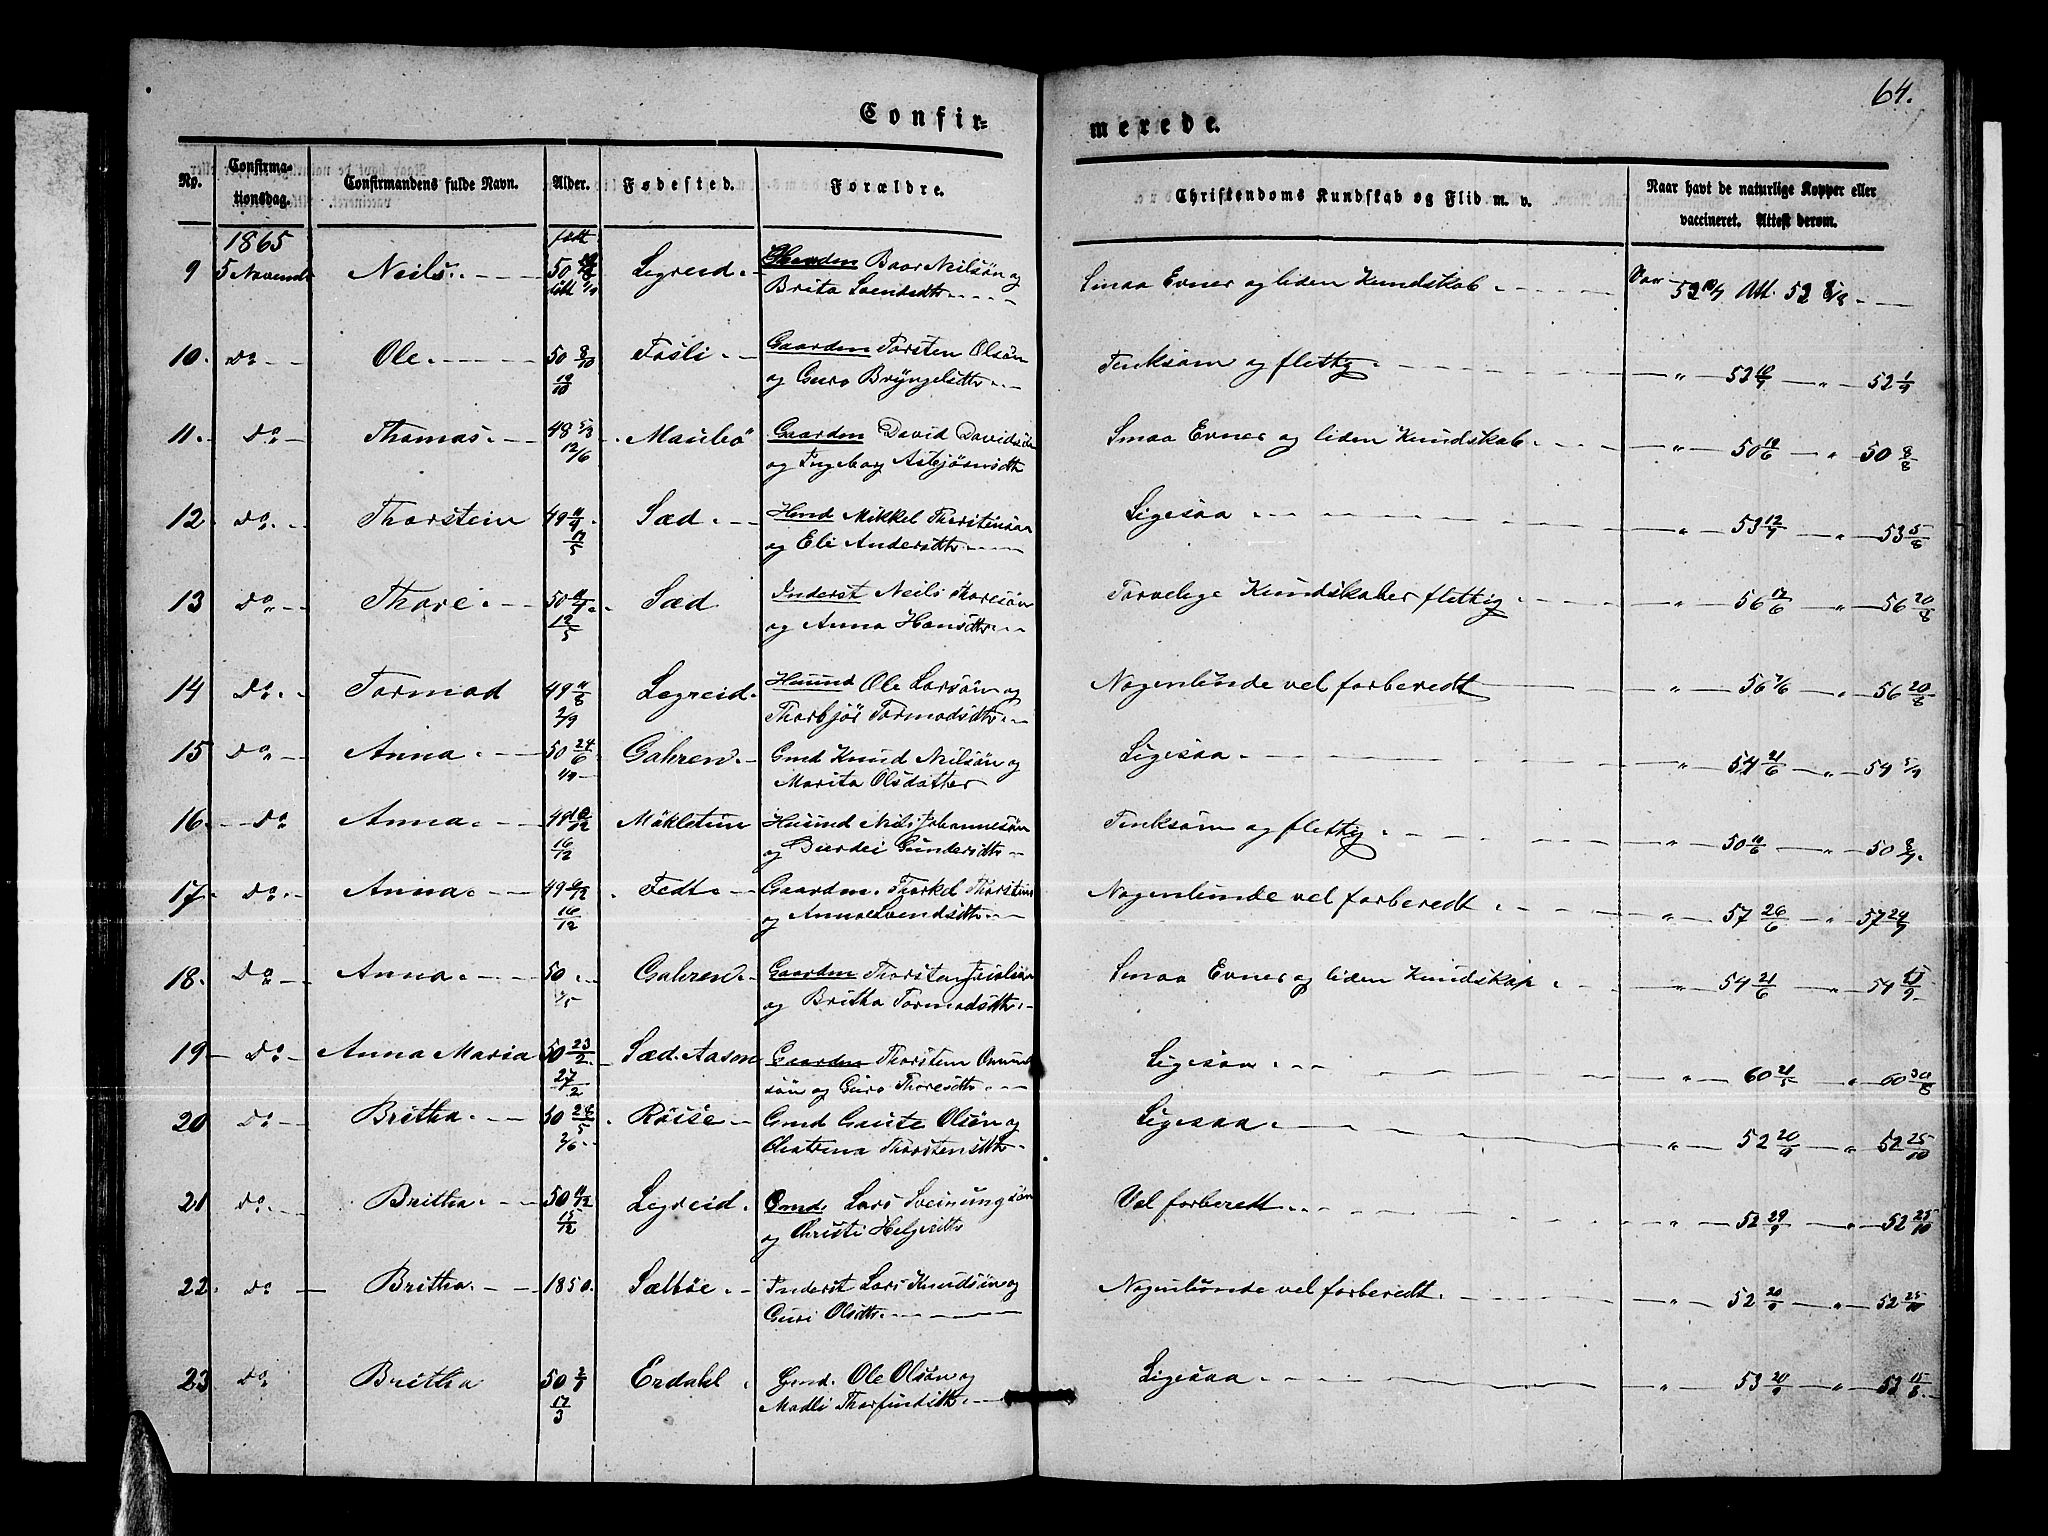 64.
Confir=
merede.
No.
Confirma-
tionsdag.
Confirmandens fulde Navn.
Alder.
Fødested.
Forældre.
Christendoms Kundskab og Flid m. v.
Naar havt de naturlige Kopper eller
vaccineret. Attest derom.
1865
født
9 5 Novemb Neils. 50 Legreid. Baar Neilsön og
Brita Svendsdtr.
Smaa Evner og liden Kundskab
Att. 52
10. Do Ole. 50 8/10 Fosli. Gaardm Torsten Olsön
19/10 og Guro Bryngelsdtr.
Tenksom og flettig. " 52 " 52 1/9
11. Do Thomas. 48 5/3 Maurbö Gaardm David Davidsön
12/6 og Ingeborg Asbjörnsdtr
Smaa Evner og liden Kundskab. " 50 " 50 8/8
12. Do Thorstein 49 Sæd. Huusd Mikkel Thorstensön
og Eli Andersdtr.
Ligesaa " 53 12/7 " 53 5/8
13 Do Thore. 50 Sæd Inderst Neils Thoresön
og Anna Hansdtr.
Torvelige Kundskaber flettig. " 56 17/6 " 56 20/8
14 Do Tormod 49 Legreid. Huusd Ole Larsön og
2/9 Thorbjör Tormodsdtr.
Nogenlunde vel forberedt " 56 " 56 20/8
15 Do Anna. 50 24/6 Gahren. Gmd Knud Neilsön og
Marita Olsdatter
Ligesaa. " 54 21/6 " 54
16. Do Anna. 49 Mökletun Huusd Neils Johannesön
16/12 og Gundersdtr
Tenksom og flettig. " 50 " 50 8/7.
17. Do Anna. 49 Fedt. Gaardm. Thorkel Thorstens
16/12 og Anna Svendsdtr.
Nogenlunde vel forberedt. " 57 26/6 " 57 24/7
18. Do Anna. 50 Gahren. Gaardm
og Britha Tormodsdtr.
Smaa Evner og liden Kundskap. " 54 21/6 " 54
19 Do Anna Maria 50 23/2 Sæd. Aasen Gaardm Thorstein Omund
27/2 sön og Guro Thoresdtr.
Ligesaa " 60 21/5 " 60
20 Do Britha. 50 28/5 Röise Gmd Gaute Olsön og
2/6 Chatrina Thorstensdtr.
Ligesaa. " 52 20/9 " 52 25/10
21 Do Britha. 50 Legreid. Gmd. Lars Sveinungsön
15/12 og Christi Helgesdtr
Vel forberedt. " 52 29/9 " 52 25/10
22. Do Britha. 1850. Sælböe. Inderst Lars Knudsön og
Guri Olsdtr.
Nogenlunde vel forberedt. " 52 20/9 " 52 25/10
23 Do Britha 50 2/7 Erdahl. Gmd. Ole Olsön og
17/3 Madli Thorfindsdtr.
Ligesaa. " 53 20/9 " 53 15/8